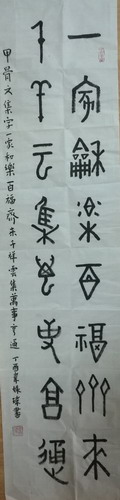 一家龢樂百福齊來
千祥雲集萬事亨通
甲骨文集字一家和樂百福齊來千祥雲集萬事亨通丁酉書